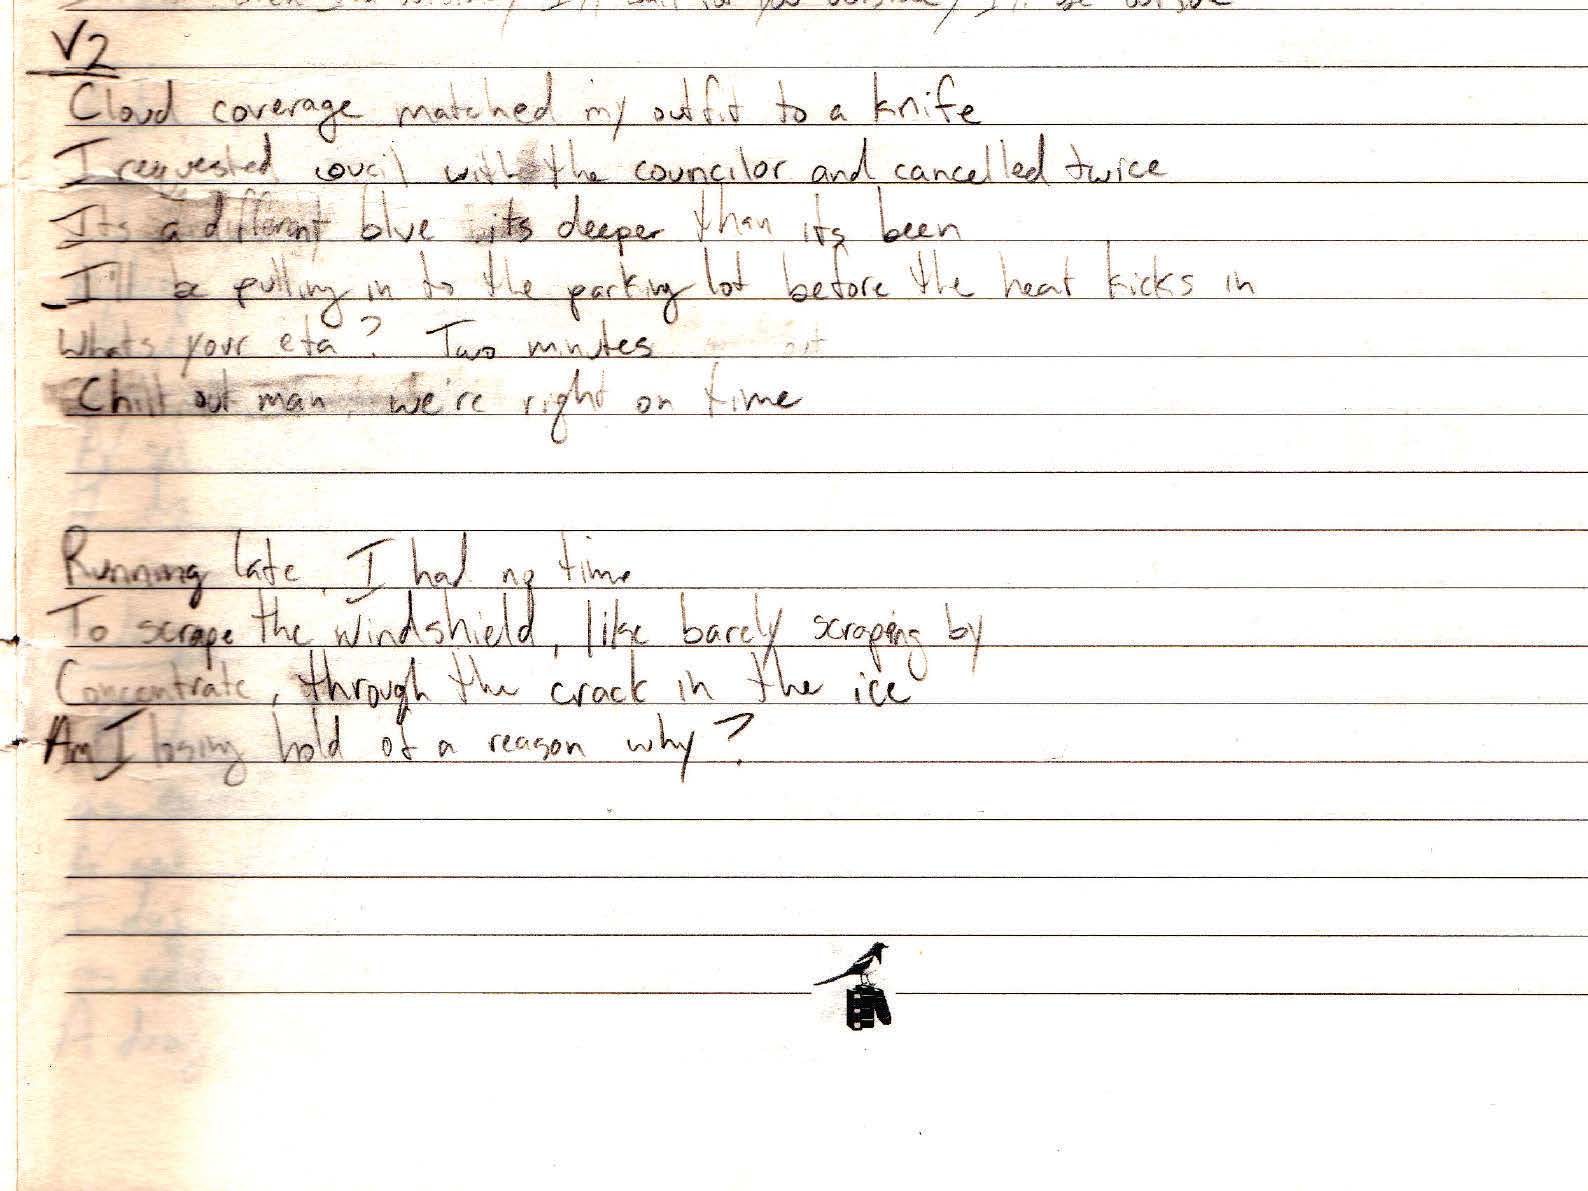 I'll wait for you outside, I'll be outside
V2
Cloud coverage matched my outfit to a knife
I requested coucil with the councilor and cancelled twice
Its a different blue its deeper than its been
I'll be pulling in to the parking lot before the heat kicks in
Whats your eta? Two minutes out
Chill out man, we're right on time
Running late, I had no time
To scrape the windshield, like barely scraping by
Concentrate, through the crack in the ice
Am I losing hold of a reason why?